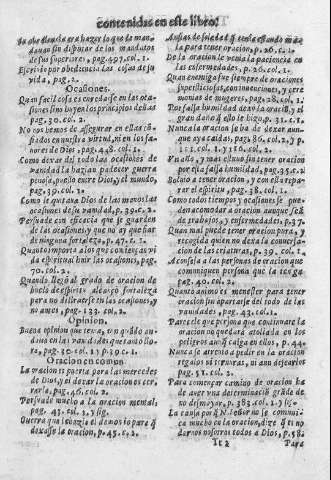 contenidas en este libro.
Su obediencia era hazer lo que la man-
dauan sin disputar de los mandatos
de sus superiores, pag. 497. col. 1.
Escriuio por obediencia las cosas de su
vida, pag. 2.
Ocasiones.
Quan facil cosa es enredarse en las oca-
siones
pag. 30. col. 2.
No nos hemos de assegurar en ellas
en los fa-
uores de Dios, pag. 148. col. 1.
Como dexar del todo las ocasiones de
vanidad la hazian padecer guerra
entre Dios, y el mundo,
pag. 39. col. 1.
Como le quitaua Dios de las manos las
ocasiones de su vanidad, p. 39. c. 2.
Persuade con eficacia que se guarden
de las ocasiones, y que no ay que fiar
de ninguna fortaleza, p. 47. c. 1.
Quanto importa a los que comiençan vi-
da espiritual huir las ocasiones, pag.
70. col. 2.
Quando llegò al grado de oracion de
buelo de espiritu
para no en las ocasiones, y
no antes, pag. 133. col. 2.
Opinion.
Buena opinion que tenia,
pag. 30. col. 1. y p. 39. c. 1.
Oracion en comun
La oracion es puerta para las mercedes
de Dios, y el dexar la oracion es cer-
rarla, pag. 46. col. 2.
Persuade mucho a la oracion mental,
pag. 43. col. 1. y sig.
Guerra que le hazia el demonio para que
dexasse la oracion, p. 45. c. 2.
Ansias de soledad que tenia estando ma-
la para tener oracion, p. 26. c. 1.
De la oracion le venia la paciencia en
las enfermedades, p. 26. col. 1.
Quan enemiga fue siempre de oraciones
supersticiosas, continuaciones, y cere-
monias de mugeres, pag. 28. col. 1.
Por falsa humildad dexò la oracion, y el
gran daño que ello le hizo, p. 31. c. 1.
Nunca la oracion se ha de dexar aun-
que aya caidas, pag. 80. col. 2. y p.
111. col. 1. y 180. col. 2.
Vn año, y mas estuuo sin tener oracion
por esta falsa humildad, pag. 35. c. 2.
Boluio a tener oracion, y con ella repa-
rar el espiritu, pag. 38. col. 1.
Como todos tiempos y ocasiones se pue-
den acomodar a oracion aunque sea
de trabajos, y enfermedades, p. 37.
Quan mal puede tener oracion pura, y
recogida quien no dexa la conuersa-
cion de las criaturas, p. 39. col. 1.
Aconseja a las personas de oracion que
comuniquen personas que la tenga
pag. 40. col. 2.
Quanto animo es menester para tener
oracion sin apartarse del todo de las
vanidades, pag. 43. col. 1.
Parecele que persona que continuare la
oracion no quedarà en los
peligros aunque caiga en ellos, p. 44.
Nunca se atreuio a pedir en la oracion
regalos ni ternuras, ni aun dezirlos
pag. 51. col. 2.
Para començar camino de oracion ha
de auer vna determinacion grande de
no desmayar, p. 383. col. 1. y sig.
La causa porque N. Señor no se comuni-
ca mucho en la oracion, dize que es no
darnos nosotros todos a Dios, p. 58.
It 2 Para